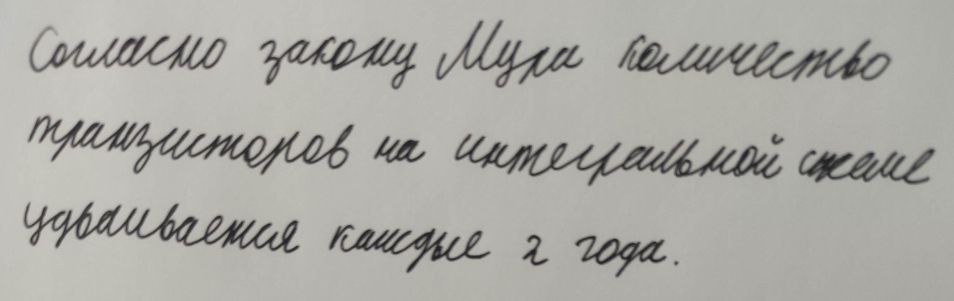 Согласно закону Мура количество
транзисторов на интегральной схеме
удваивается каждые 2 года.